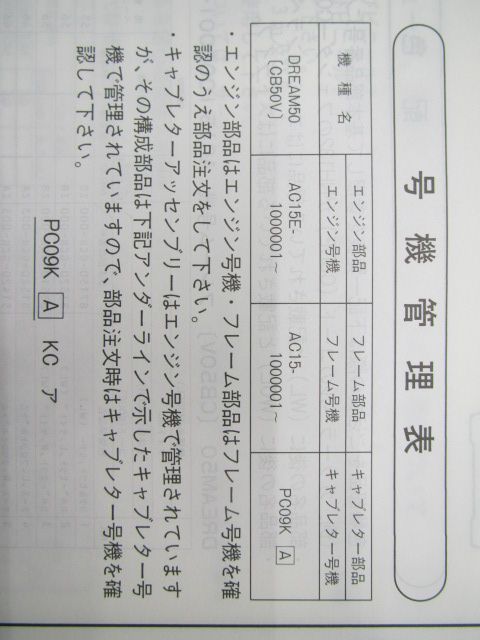 号機管理表
機種名 エンジン部品 フレーム部品 キャブレター部品
エンジン号機 フレーム号機 キャブレター号機
DREAM50 AC15E- AC15- PC09K A
〔CB50V〕 1000001～ 1000001～
・エンジン部品はエンジン号機・フレーム部品はフレーム号機を確
認のうえ部品注文をして下さい。
・キャブレターアッセンブリーはエンジン号機で管理されています
が、その構成部品は下記アンダーラインで示したキャブレター号
機で管理されていますので、部品注文時はキャブレター号機を確
認して下さい。
PC09K A KC ア